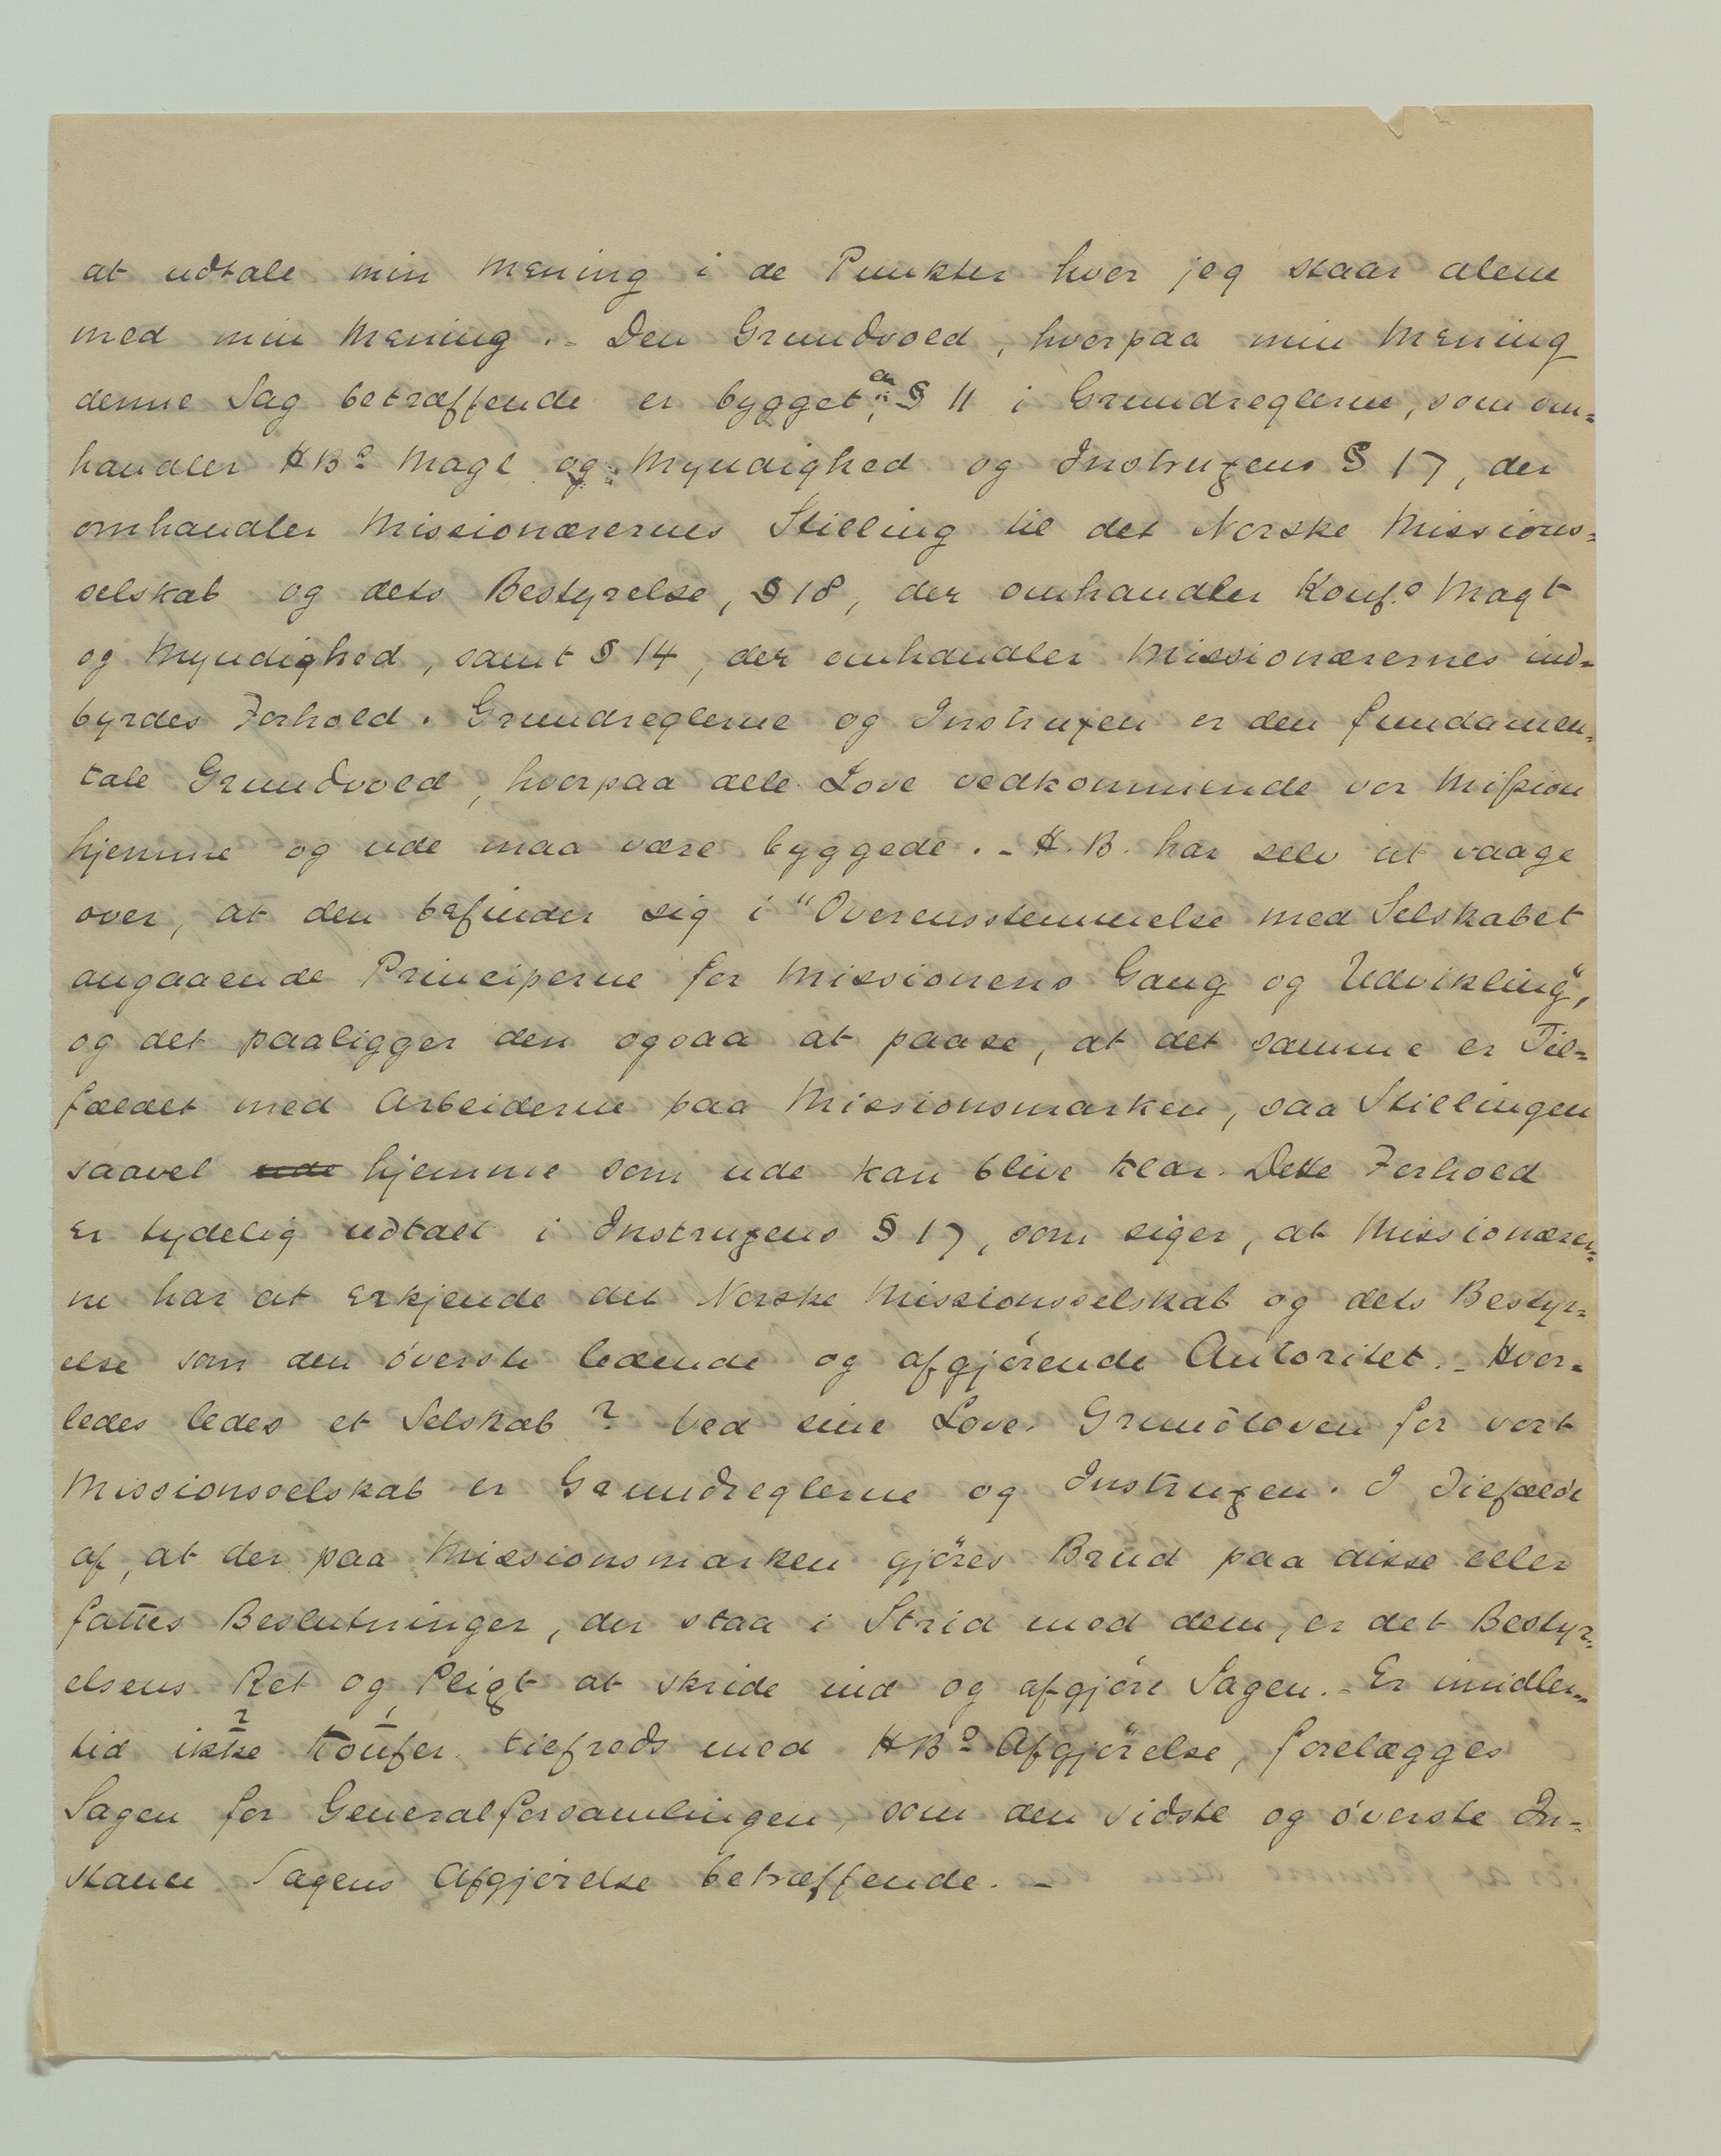 at udtale min Mening i de Punkter hvor jeg staar alene
med min Mening. - Den Grundvold, hvorpaa min Mening
denne Sag betræffende er bygget, er § 11 i Grundreglerne, som om=
handler HBs Magt og Myndighed og Instruxens § 17, der
omhandler Missionærernes Stilling til det Norske Missions=
selskab og dets Bestyrelse, § 18, der omhandler Konf.s Magt
og Myndighed, samt § 14, der omhandler Missionærernes ind=
byrdes Forhold. Grundreglerne og Instruxen er den fundamen=
tale Grundvold, hvorpaa alle Love vedkommende vor Mission
hjemme og ude maa være byggede. - H.B. har selv at vaage
over, at den befinder sig i "Overensstemmelse med Selskabet
angaaende Principerne for Missionens Gang og Udvikling",
og det paaligger den ogsaa at paase, at det samme er Til=
fældet med Arbeiderne paa Missionsmarken, saa Stillingen
saavel ude hjemme som ude kan blive klar. Dette Forhold
er tydelig udtalt i Instruxens § 17, som siger, at Missionærer=
ne har at erkjende det Norske Missionsselskab og dets Bestyr=
else som den øverste ledende og afgjørende Autoritet. - Hvor=
ledes ledes et Selskab? Ved sine Love. Grundloven for vort
Missionsselskab er Grundreglerne og Instruxen. I Tilfælde
af, at der paa Missionsmarken gjøres Brud paa disse eller
fattes Beslutninger, der staa i Strid med dem, er det Bestyr=
elsens Ret og Pligt at skride ind og afgjøre Sagen. - Er imidler=
tid ikke Konfer. tilfreds med HBs Afgjørelse, forelægges
Sagen for Generalforsamlingen, som den sidste og øverste In=
stans Sagens Afgjørelse betræffende. -